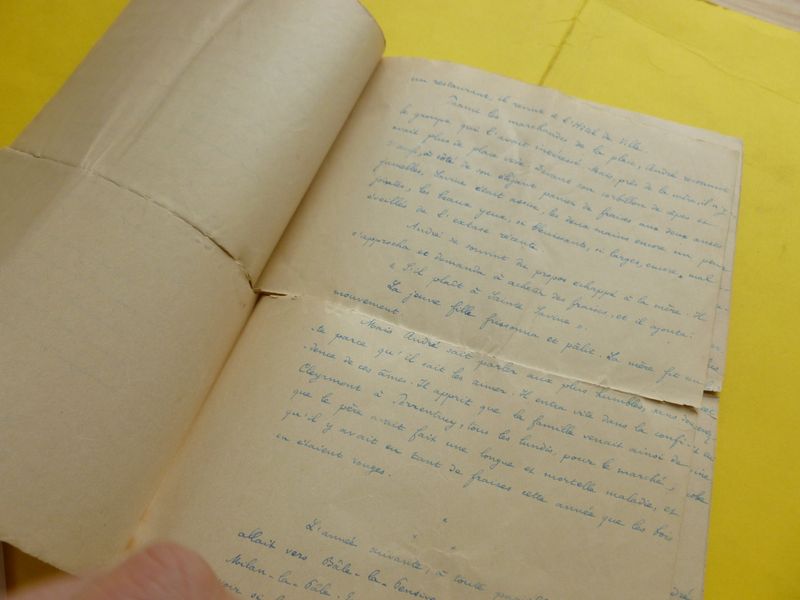 un restaurant, il revint à l'Hôtel de Ville.
Parmi les marchandes de la place, André reconnut
le groupe qui l'avait intéressé. Mais, près de la mère, il n'y
avait plus de place vide. Devant son corbillon de cèpes et
d'œufs, à côté de son élégant panier de fraises aux deux anses
jumelles, Savine était assise, les deux mains encore un peu
jointes, les beaux yeux, si bleuissants, si larges, encore mal
éveillés de l'extase récente.
André se souvint du propos échappé à la mère. Il
s'approcha et demanda à acheter des fraises, et il ajouta:
« S'il plaît à Sainte Savine ».
La jeune fille frissonna et pâlit. La mère fit un
mouvement.
Mais André sait parler aux plus humbles, sans
parce qu'il sait les aimer. Il entra vite dans la confi-
dence de ces âmes. Il apprit que la famille venait ainsi de
Cleyrmont à Porrentruy, tous les lundis, pour le marché,
que le père avait fait une longue et mortelle maladie, et
qu'il y avait eu tant de fraises cette année que les bois
en étaient rouges.
L'année suivante, à toute
allait vers Bâle-la-Pensive
Milan-la-Pâle.